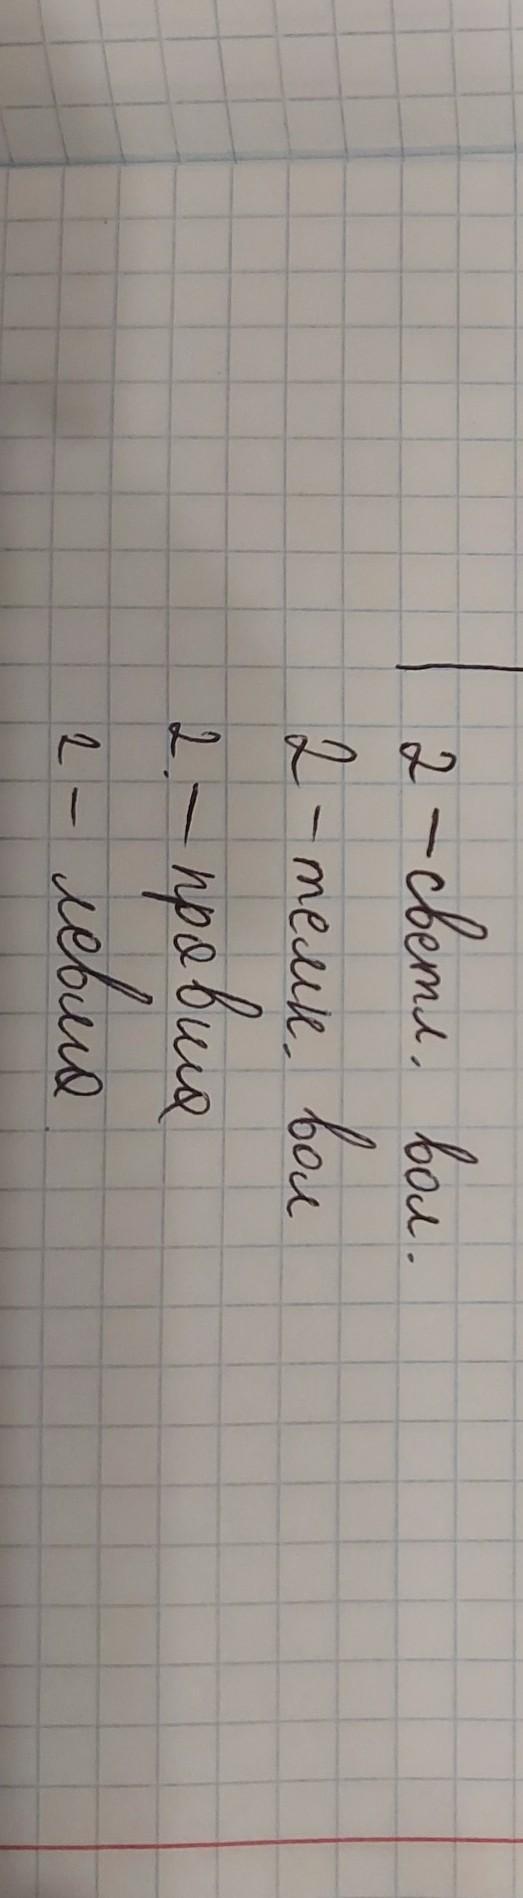 2 - светл. вол.
2 - темн. вол
2 - правша
2 - левша